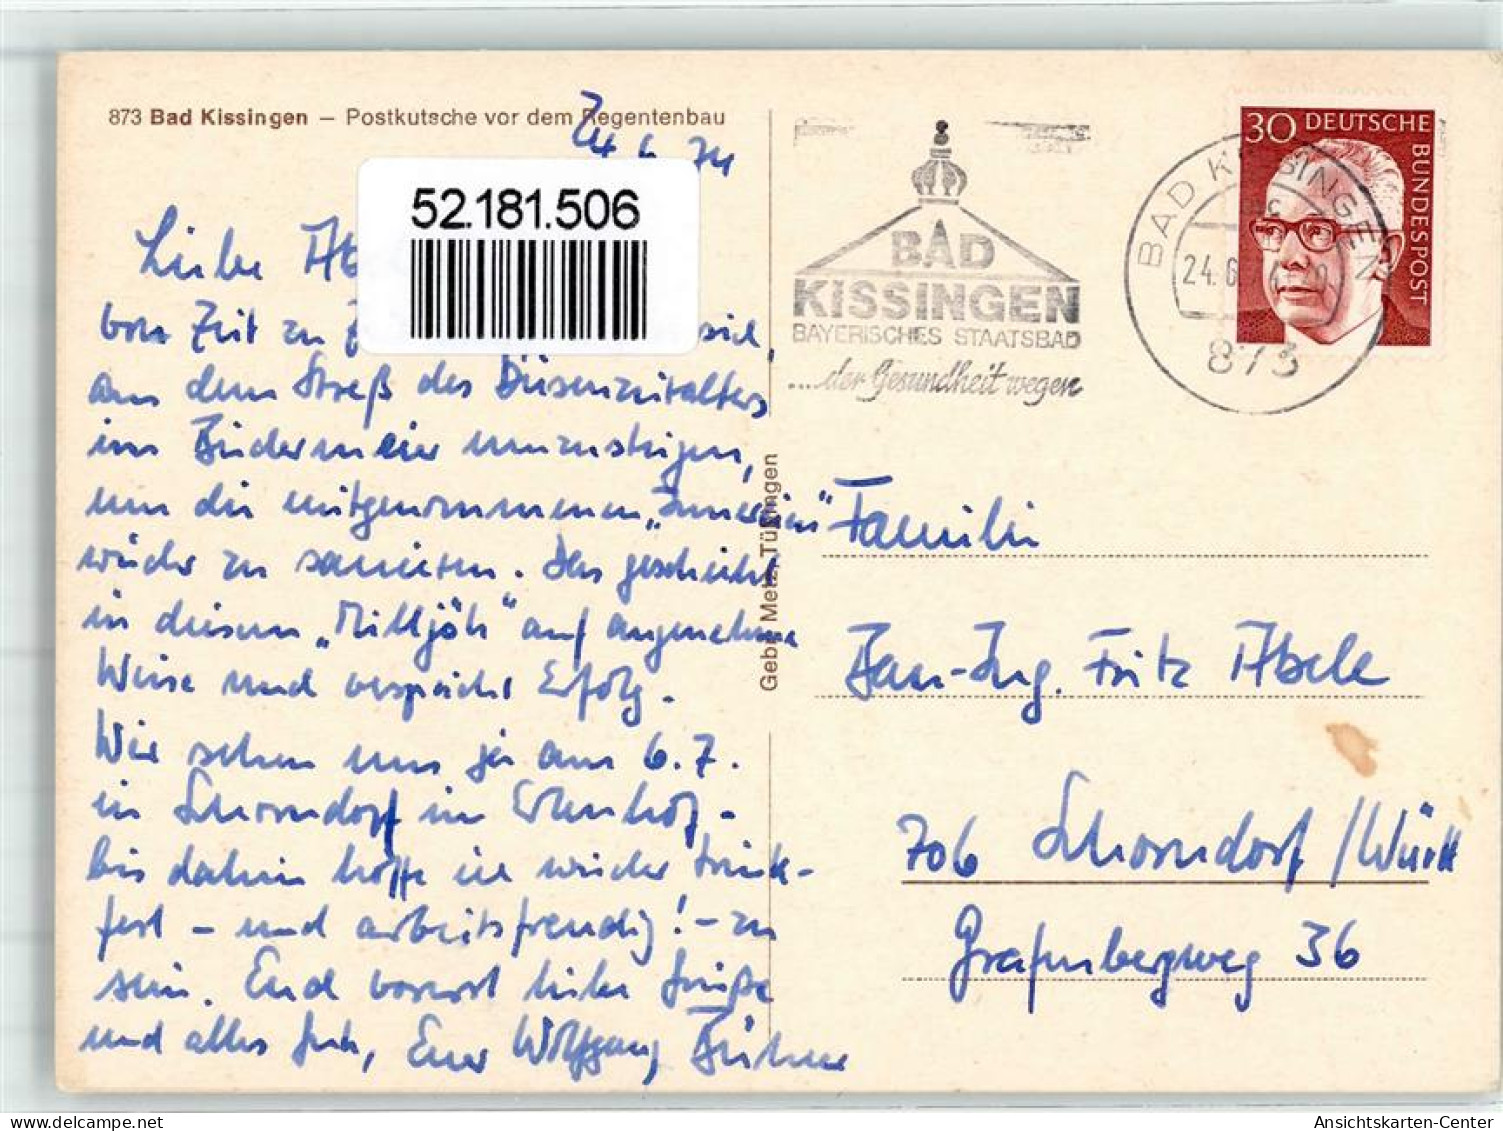 873 Bad Kissingen – Postkutsche vor dem Regentenbau
24 6 74
52.181.506
Liebe
von Zeit zu
aus dem Streß des Düsenzeitalters
ins Biedermeier umzusteigen,
um die mitgenommenen „Innereien"
wieder zu sanieren. Das geschieht
in diesem „Milljöh" auf angenehme
Weise und verspricht Erfolg.
Wir sehen uns ja am 6.7.
in Schorndorf im Erlenhof -
bis dahin hoffe ich wieder trink-
fest - und arbeitsfreudig! - zu
sein. Euch vorerst liebe Grüße
und alles Gute, Euer Wolfgang
Gebr. Metz, Tübingen
BAD
KISSINGEN
BAYERISCHES STAATSBAD
....der Gesundheit wegen
BAD KISSINGEN
24.6
873
30 DEUTSCHE
BUNDESPOST
Familie
Bau-Ing. Fritz Abele
706 Schorndorf/Württ
Grafenbergweg 36
Ansichtskarten-Center